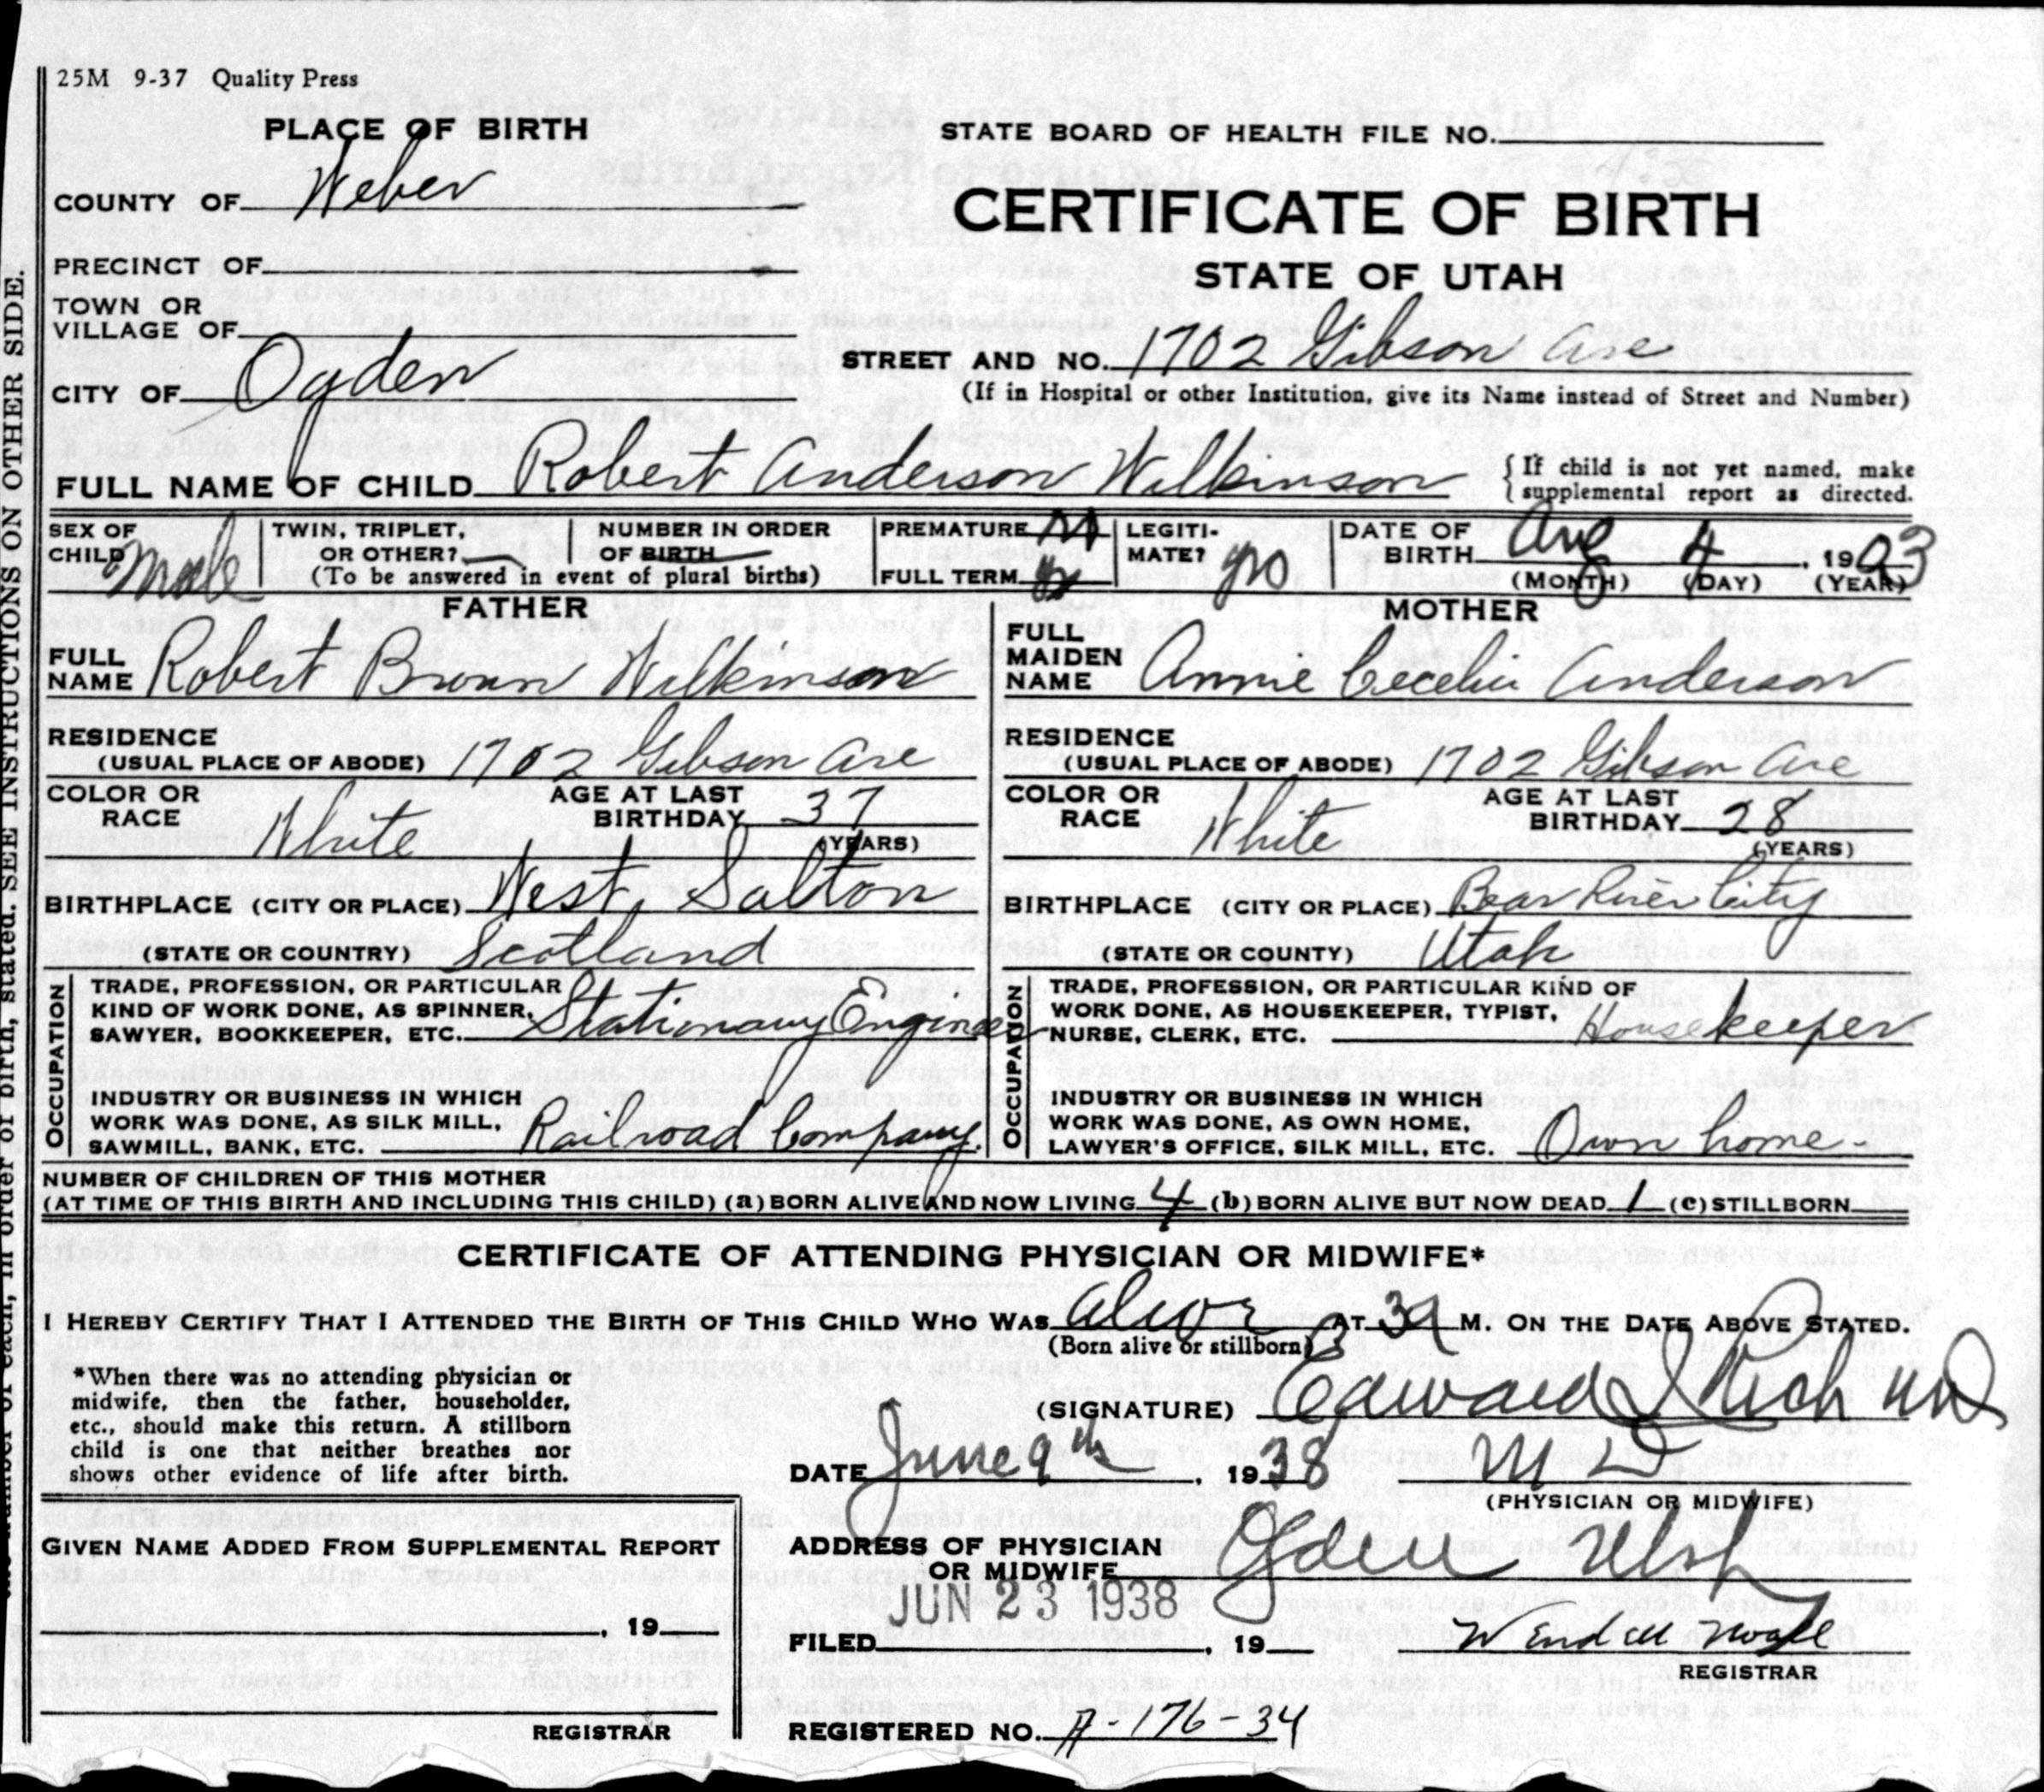 25M 9-37 Quality Press
PLACE OF BIRTH
STATE BOARD OF HEALTH FILE NO.
COUNTY OF Weber
CERTIFICATE OF BIRTH
PRECINCT OF
STATE OF UTAH
TOWN OR
VILLAGE OF
STREET AND NO. 1702 Gibson Ave
CITY OF Ogden
(If in Hospital or other Institution, give its Name instead of Street and Number)
FULL NAME OF CHILD Robert Anderson Wilkinson
{ If child is not yet named, make
supplemental report as directed.
SEX OF
CHILD Male
TWIN, TRIPLET,
OR OTHER?
NUMBER IN ORDER
OF BIRTH
(To be answered in event of plural births)
PREMATURE
FULL TERM
LEGITI-
MATE? yes
DATE OF
BIRTH Aug 4, 1903
(MONTH) (DAY) (YEAR)
FATHER
FULL
NAME Robert Brown Wilkinson
RESIDENCE
(USUAL PLACE OF ABODE) 1702 Gibson Ave
COLOR OR
RACE White
AGE AT LAST
BIRTHDAY 37
(YEARS)
BIRTHPLACE (CITY OR PLACE) West Salton
(STATE OR COUNTRY) Scotland
OCCUPATION
TRADE, PROFESSION, OR PARTICULAR
KIND OF WORK DONE, AS SPINNER,
SAWYER, BOOKKEEPER, ETC. Stationary Engineer
INDUSTRY OR BUSINESS IN WHICH
WORK WAS DONE, AS SILK MILL,
SAWMILL, BANK, ETC. Railroad Company.
MOTHER
FULL
MAIDEN
NAME Annie Cecelia Anderson
RESIDENCE
(USUAL PLACE OF ABODE) 1702 Gibson Ave
COLOR OR
RACE White
AGE AT LAST
BIRTHDAY 28
(YEARS)
BIRTHPLACE (CITY OR PLACE) Bear River City
(STATE OR COUNTY) Utah
OCCUPATION
TRADE, PROFESSION, OR PARTICULAR KIND OF
WORK DONE, AS HOUSEKEEPER, TYPIST,
NURSE, CLERK, ETC. Housekeeper
INDUSTRY OR BUSINESS IN WHICH
WORK WAS DONE, AS OWN HOME,
LAWYER'S OFFICE, SILK MILL, ETC. Own home.
NUMBER OF CHILDREN OF THIS MOTHER
(AT TIME OF THIS BIRTH AND INCLUDING THIS CHILD) (a) BORN ALIVE AND NOW LIVING 4 (b) BORN ALIVE BUT NOW DEAD 1 (c) STILLBORN
CERTIFICATE OF ATTENDING PHYSICIAN OR MIDWIFE*
I HEREBY CERTIFY THAT I ATTENDED THE BIRTH OF THIS CHILD WHO WAS alive AT 3 A M. ON THE DATE ABOVE STATED.
(Born alive or stillborn)
*When there was no attending physician or
midwife, then the father, householder,
etc., should make this return. A stillborn
child is one that neither breathes nor
shows other evidence of life after birth.
(SIGNATURE) Edward I Rich MD
DATE June 9th, 1938
M D
(PHYSICIAN OR MIDWIFE)
ADDRESS OF PHYSICIAN
OR MIDWIFE Ogden Utah
JUN 23 1938
FILED , 19
Wendell
REGISTRAR
REGISTERED NO. A-176-34
GIVEN NAME ADDED FROM SUPPLEMENTAL REPORT
, 19
REGISTRAR
of each, in order of birth, stated. SEE INSTRUCTIONS ON OTHER SIDE.